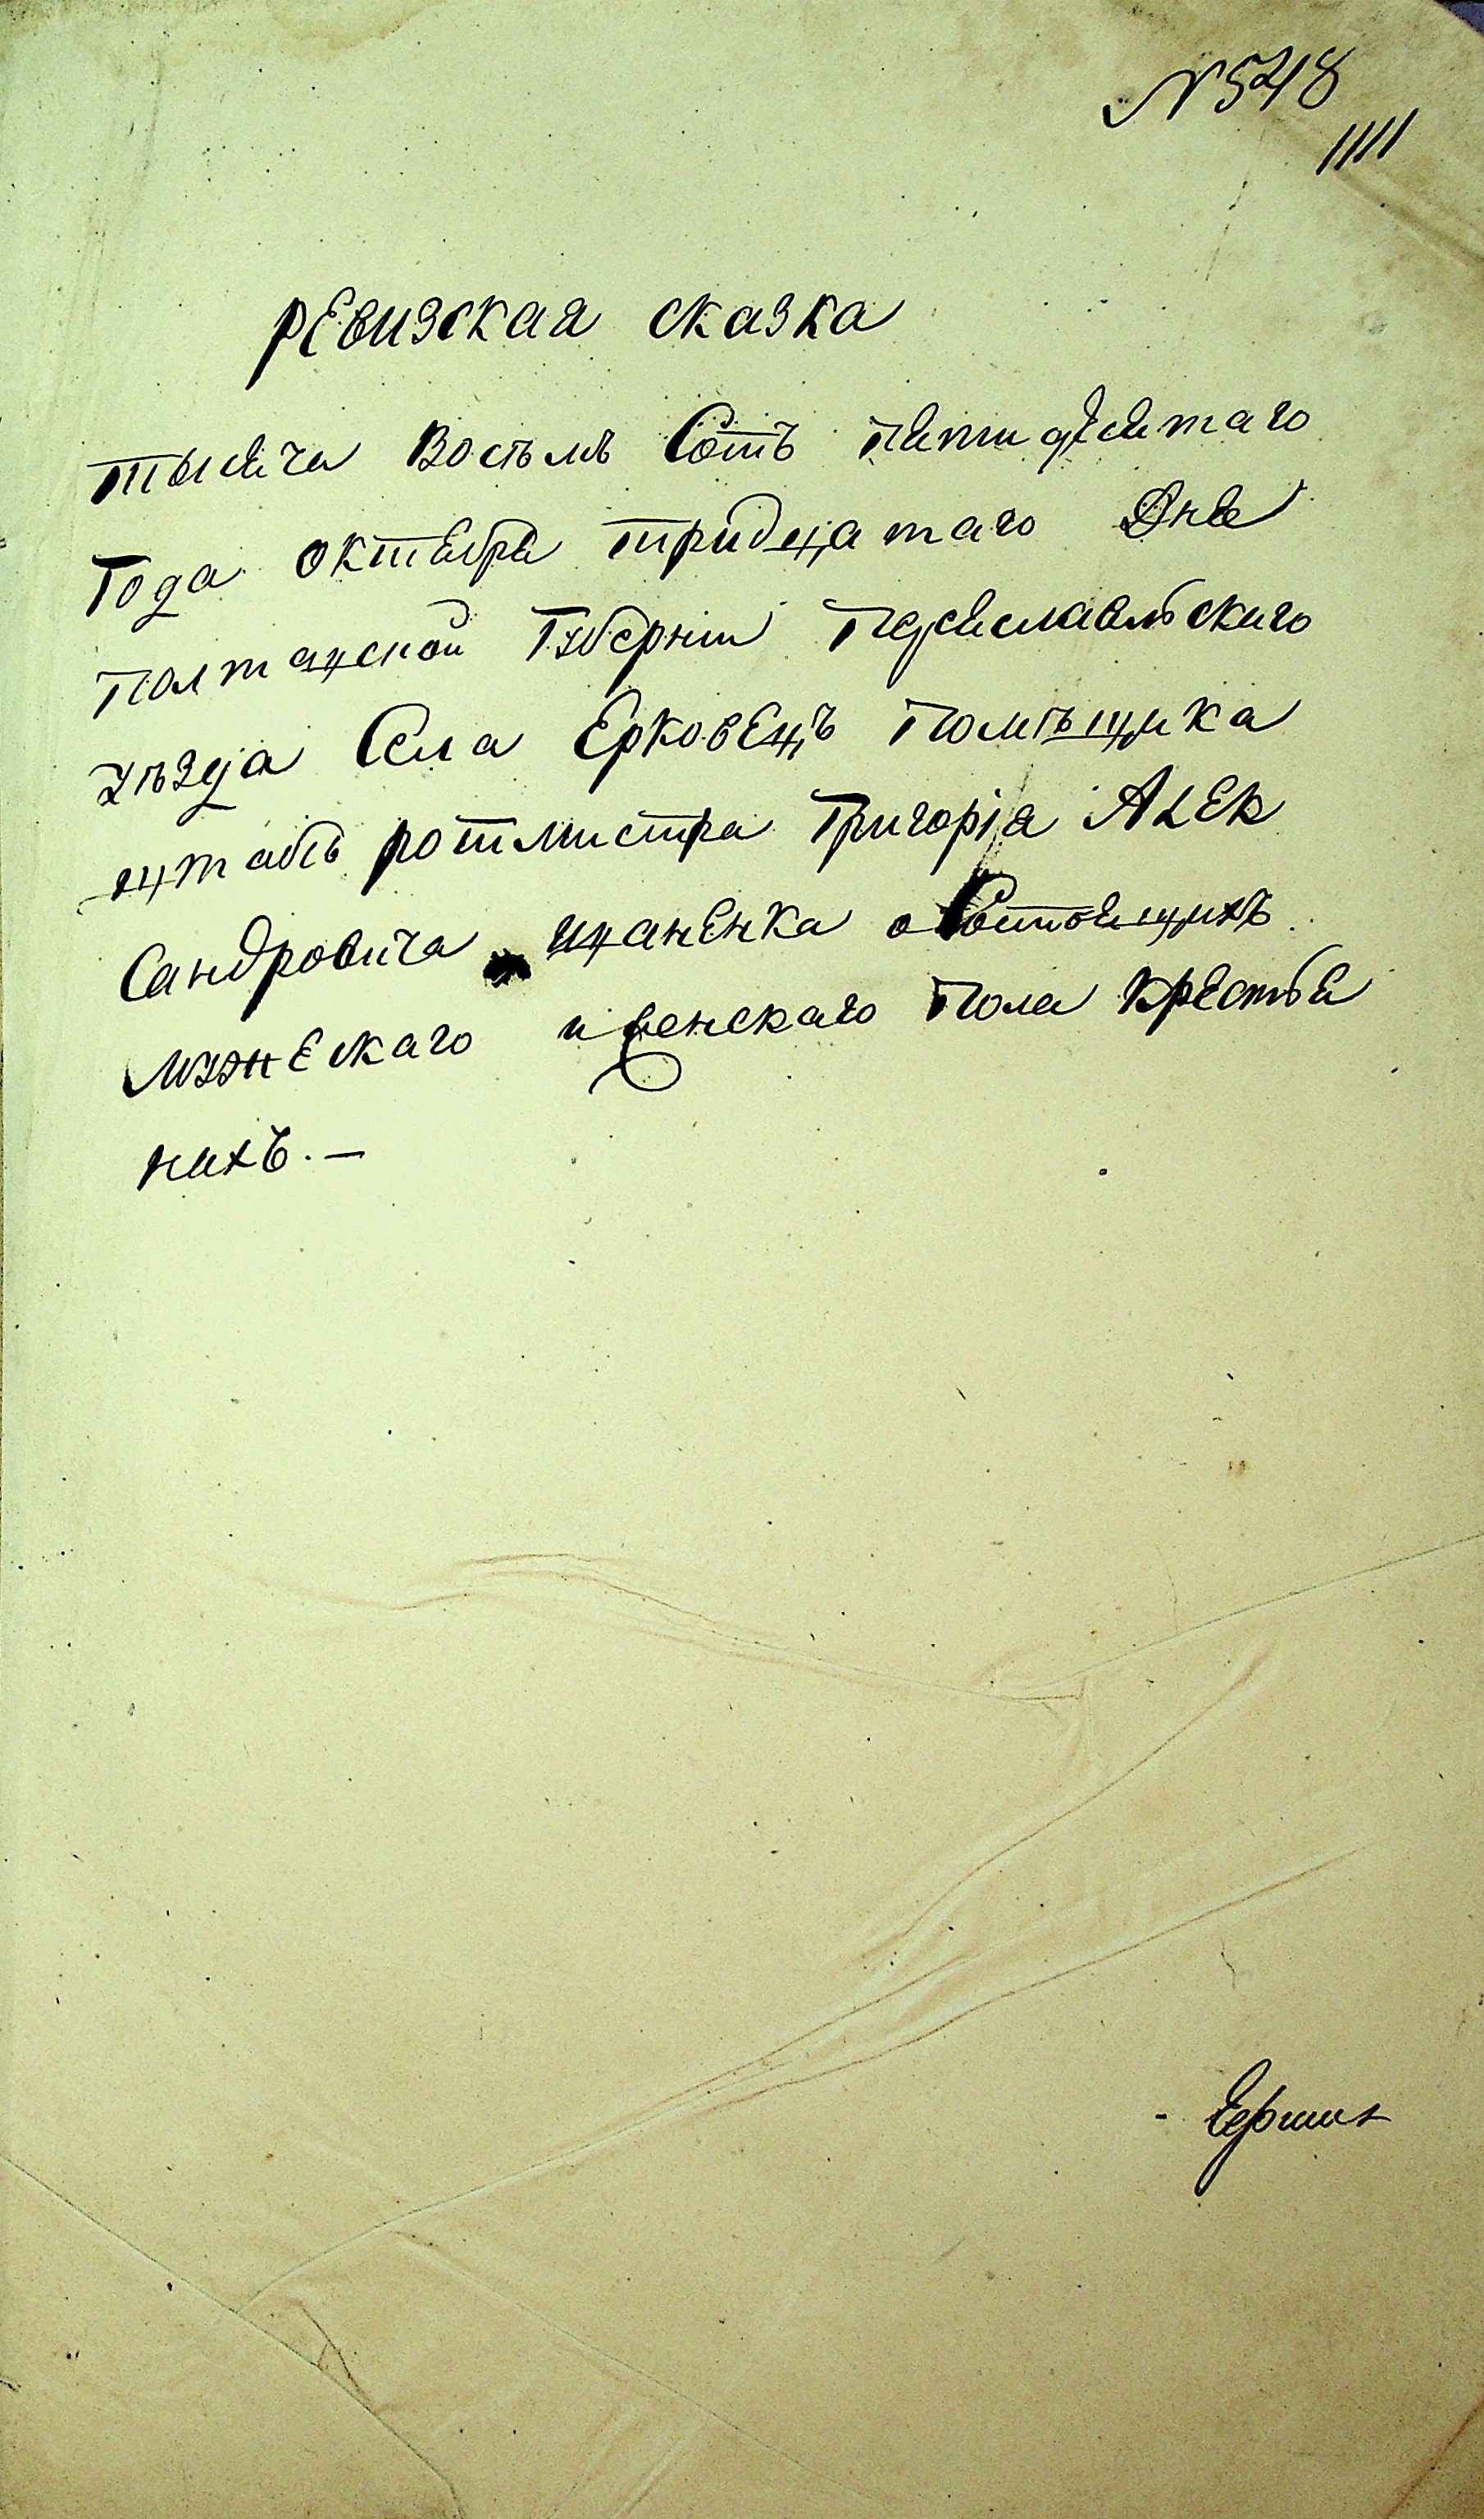 № 548
1111
Ревизская сказка
тысяча восѣмъ Сотъ пятидесятаго
Года октября тридцатаго Дня
Полтацской Губерніи Переяславльскаго
уѣзда Села Ерковецъ Помѣщика
штабъ ротмистра Григорія Алек
Сандровича Ицаненка о Состоящихъ
мужескаго и женскаго Пола крестья
нахъ. —